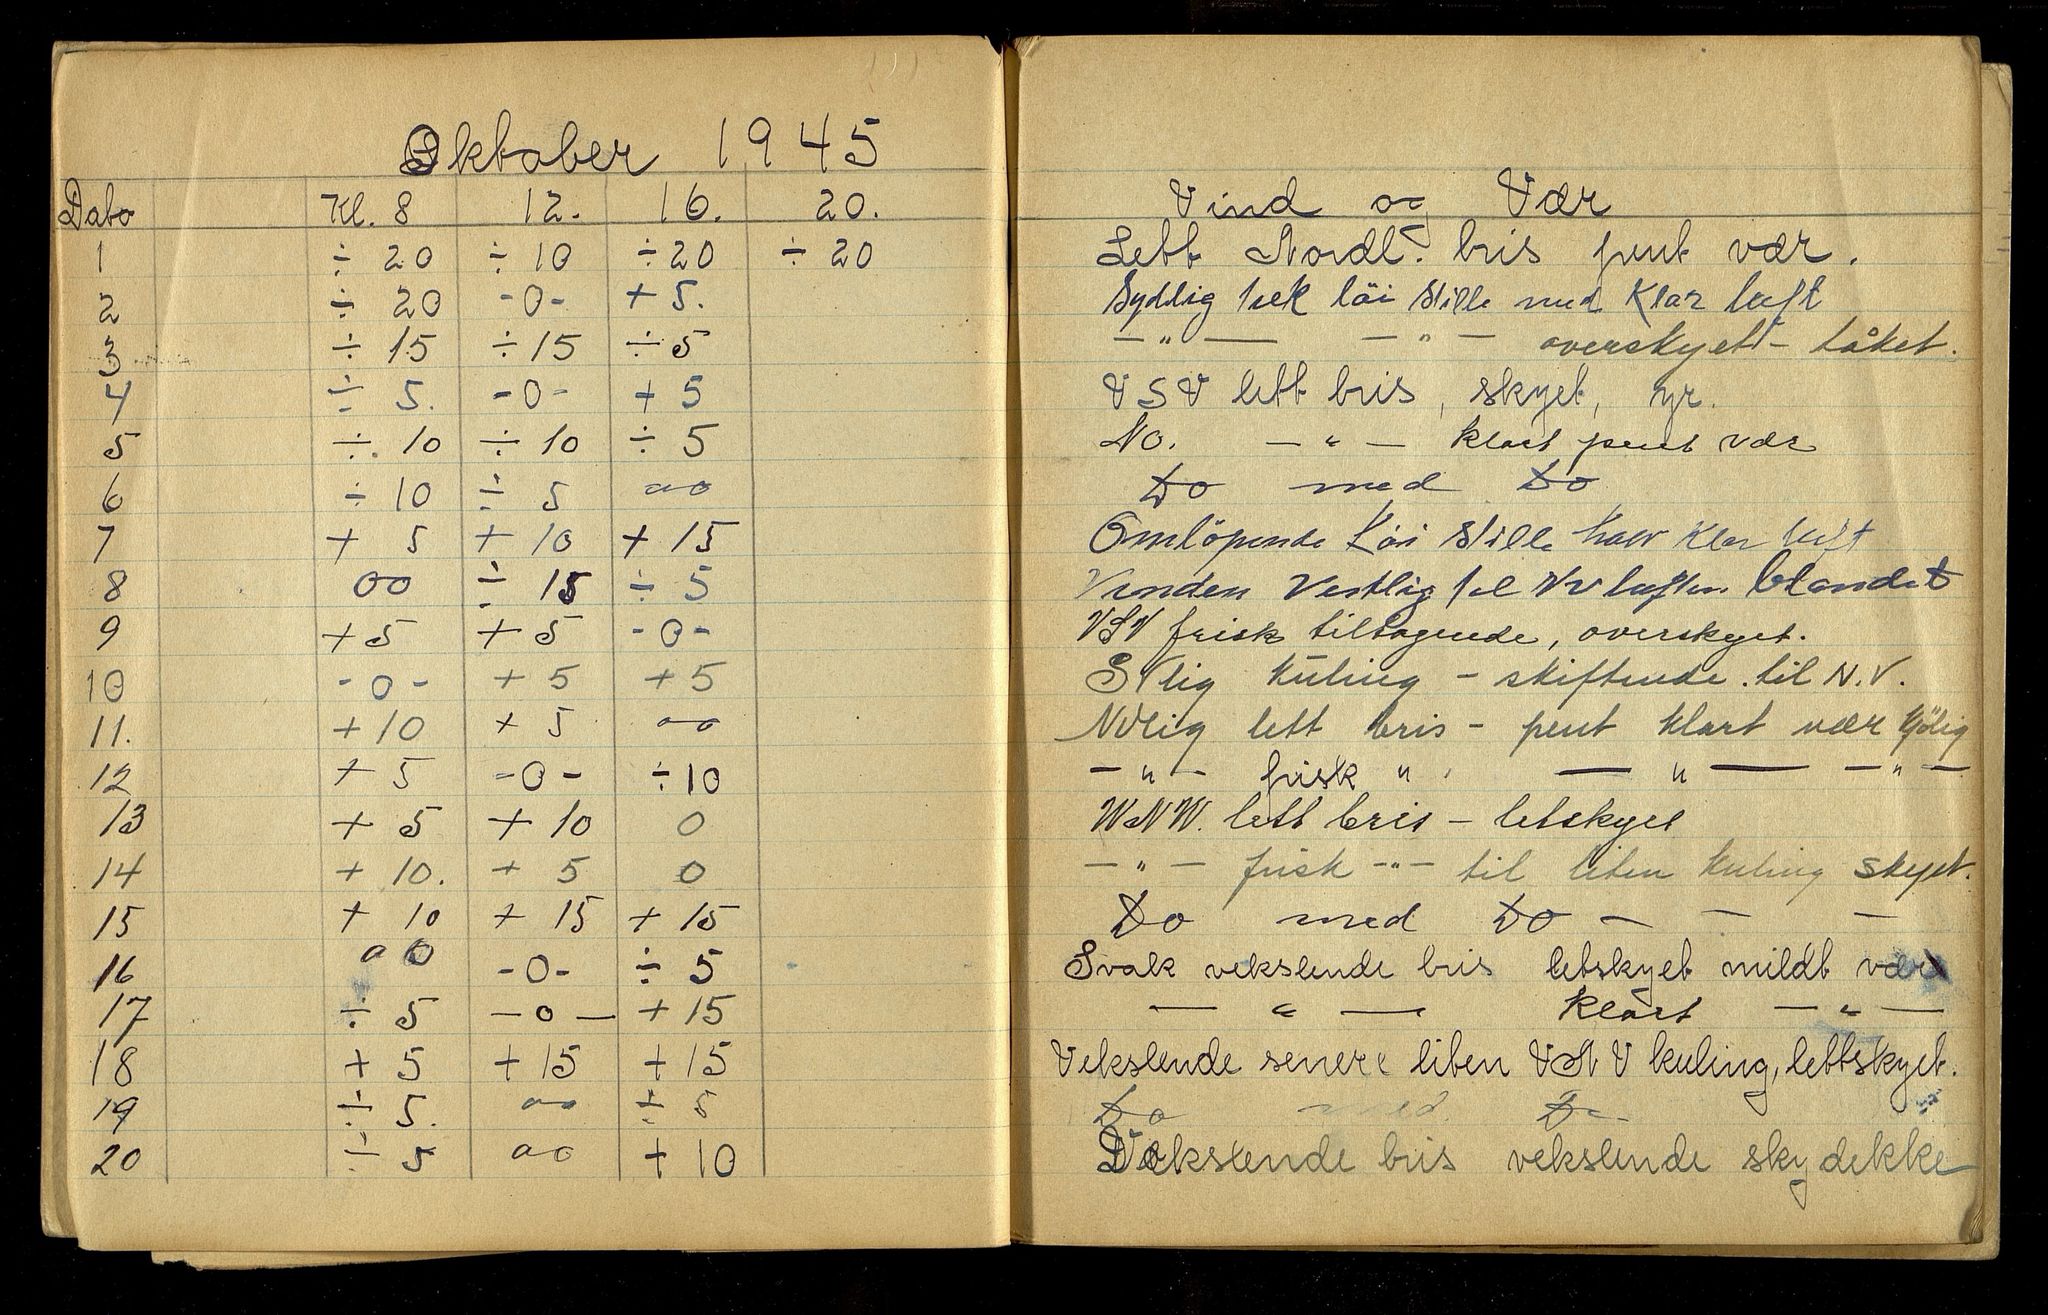 Oktober 1945
Dato Kl. 8 12. 16. 20.
1 ÷ 20 ÷ 10 ÷ 20 ÷ 20
2 ÷ 20 -0- + 5.
3 ÷ 15 ÷ 15 ÷ 5
4 ÷ 5. -0- + 5
5 ÷ 10 ÷ 10 ÷ 5
6 ÷ 10 ÷ 5 00
7 + 5 + 10 + 15
8 00 ÷ 15 ÷ 5
9 + 5 + 5 -0-
10 -0- + 5 + 5
11. + 10 + 5 00
12 + 5 -0- ÷ 10
13 + 5 + 10 0
14 + 10. + 5 0
15 + 10 + 15 + 15
16 00 -0- ÷ 5
17 ÷ 5 -0- + 15
18 + 5 + 15 + 15
19 ÷ 5. 00 ÷ 5
20 ÷ 5 00 + 10
Vind og Vær
Lett Nordl. bris pent vær.
Sydlig löi Stille med Klar luft
- " - - " - overskyet - tåket.
VSV lett bris, skyet, yr.
NO. - " - klart pent vær
Do med Do
Omlöpende Löi Stille halv Klar luft
Vinden Vestlig til NV luften blandet
VSV frisk tiltagende, overskyet.
SVlig kuling - skiftende til N.V.
NVlig lett bris - pent klart vær kjölig
- " - frisk " - " - - " -
WNW. lett bris - letskyet
- " - frisk - " - til liten kuling skyet.
Do med Do - - -
Svak vekslende bris letskyet mildt vær
- " - klart - " -
Vekslende senere liten VNV kuling, lettskyet.
Do med Do
Vekslende bris vekslende skydekke